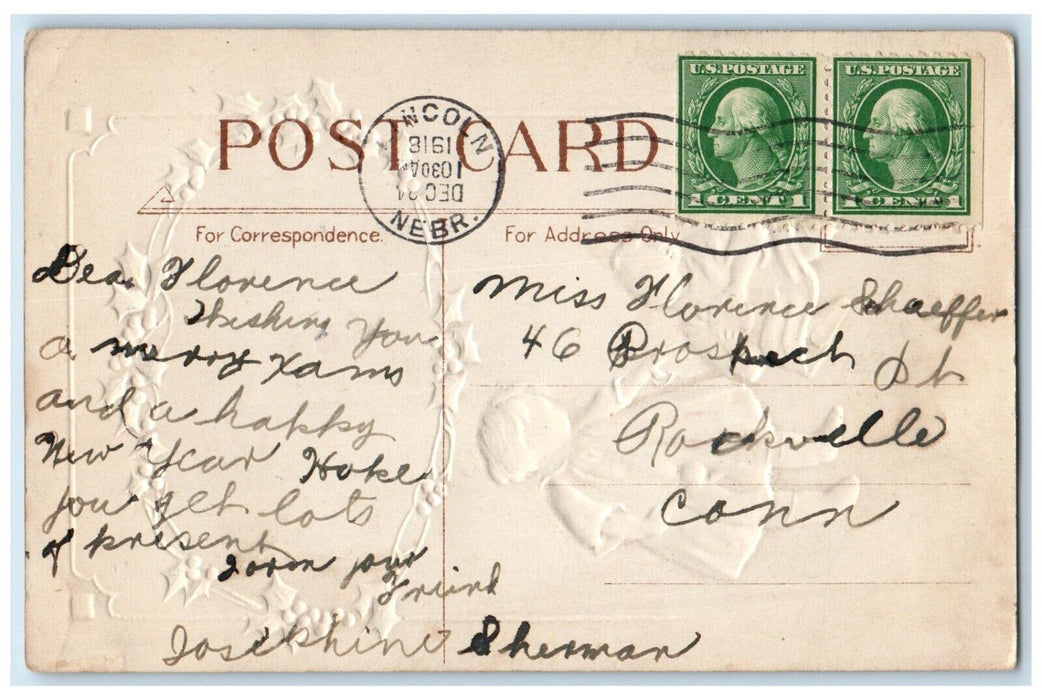 POST CARD
LINCOLN
1918
1030AM
DEC 24
NEBR.
U.S.POSTAGE
1 CENT 1
U.S.POSTAGE
1 CENT 1
For Correspondence.
For Address Only
Dear Florence
Wishing You
a merry Xams
and a happy
New Year Hoke
you get lots
of present
From your
Friend
Josephine Sherman
Miss Florence Schaeffer
46 Prospect St
Rockville
Conn